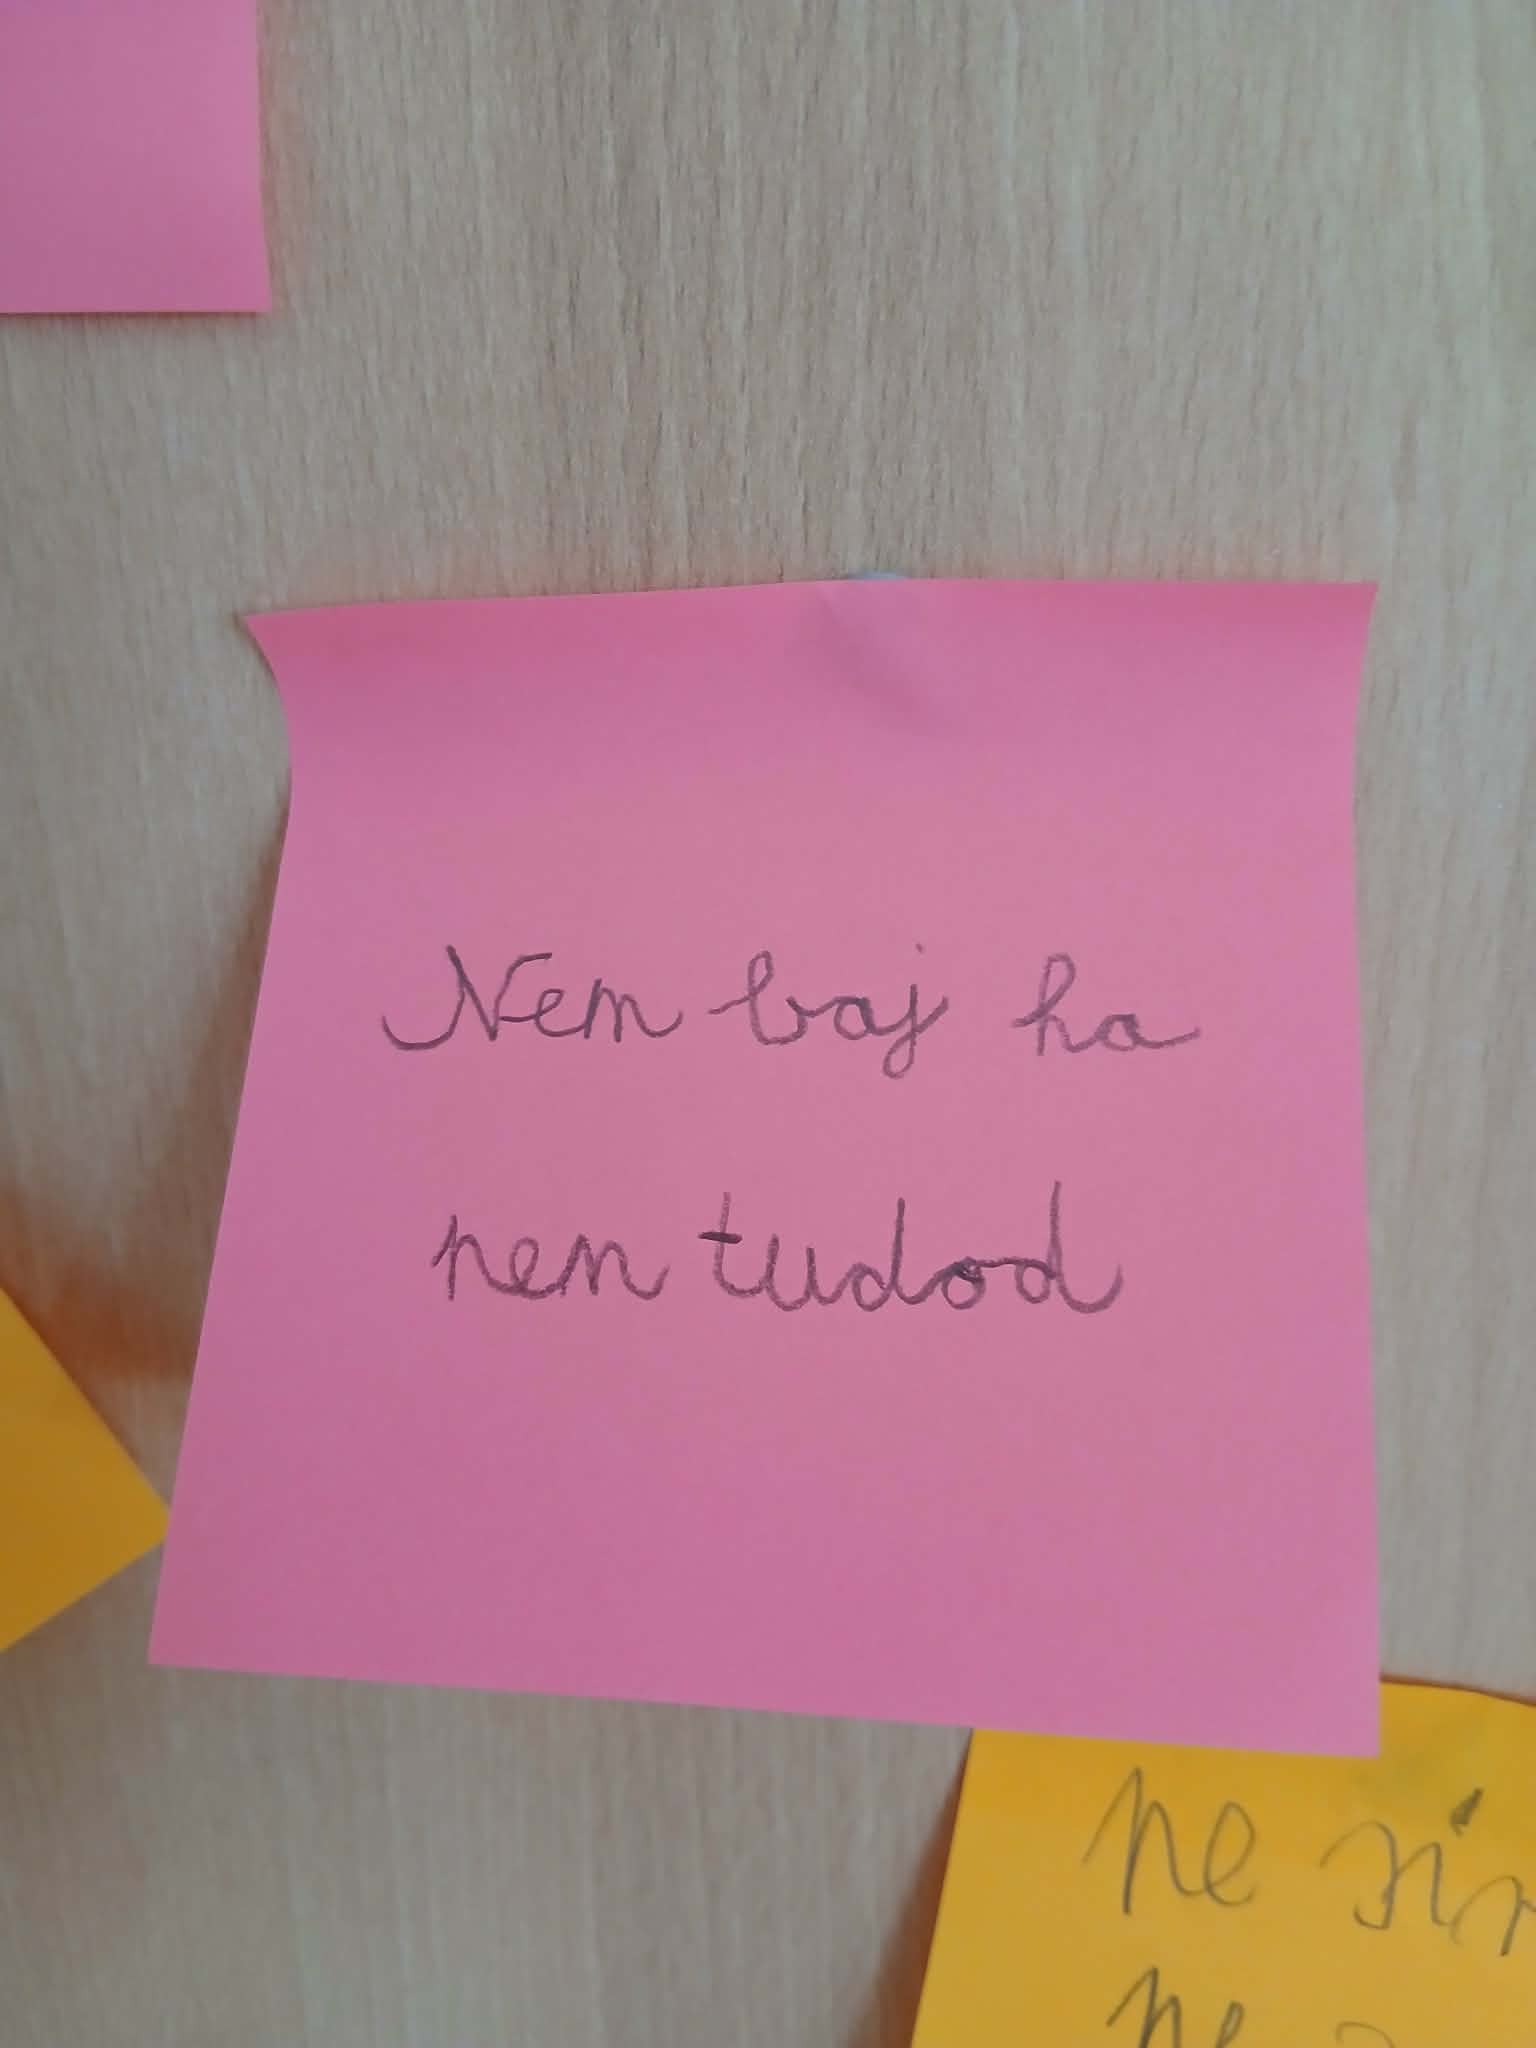 Nem baj ha
nem tudod
ne
ne